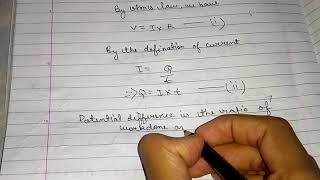 By ohm's law, we have
V = I x R —— (i)
By the defination of current
I = Q/t
=> Q = I x t —— (ii)
Potential difference is the ratio of
workdone